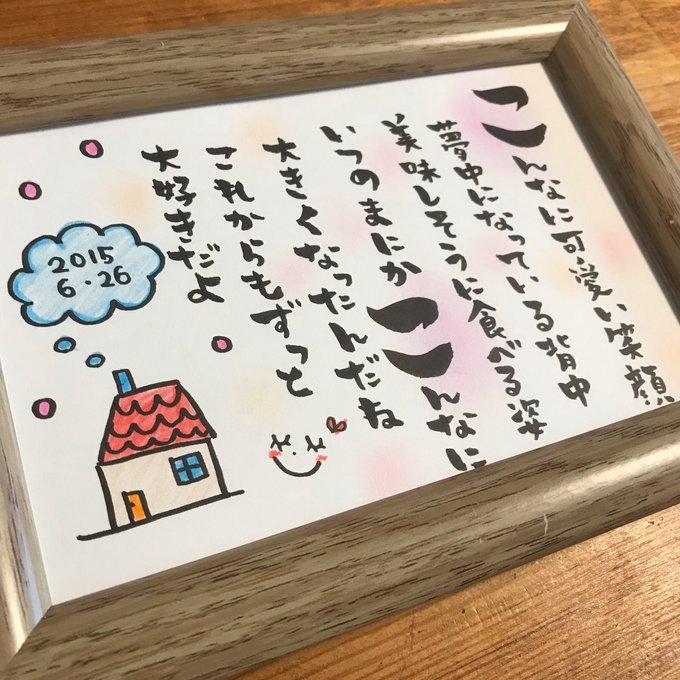 こんなに可愛い笑顔
夢中になっている背中
美味しそうに食べる姿
いつのまにかこんなに
大きくなったんだね
これからもずっと
大好きだよ
2015
6・26